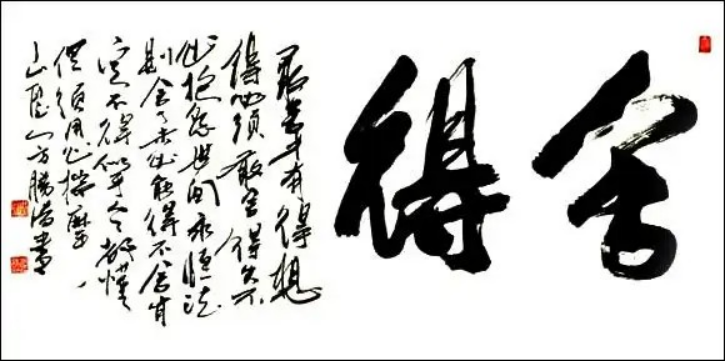 舍得
敢舍才有得想
得必须敢舍得失不
必抱怨世间永恒法
则舍了未必能得不舍肯
定不得似乎都懂
但须用心揣摩
山人方勝書